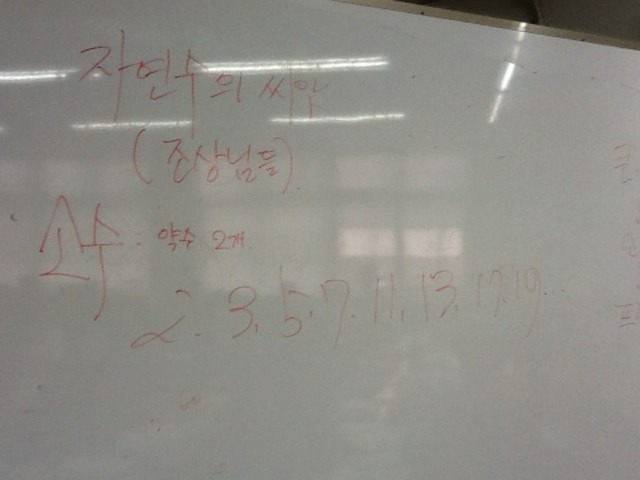 자연수의 씨앗
(조상님들)
소수 : 약수 2개.
2. 3. 5. 7. 11. 13. 17. 19...